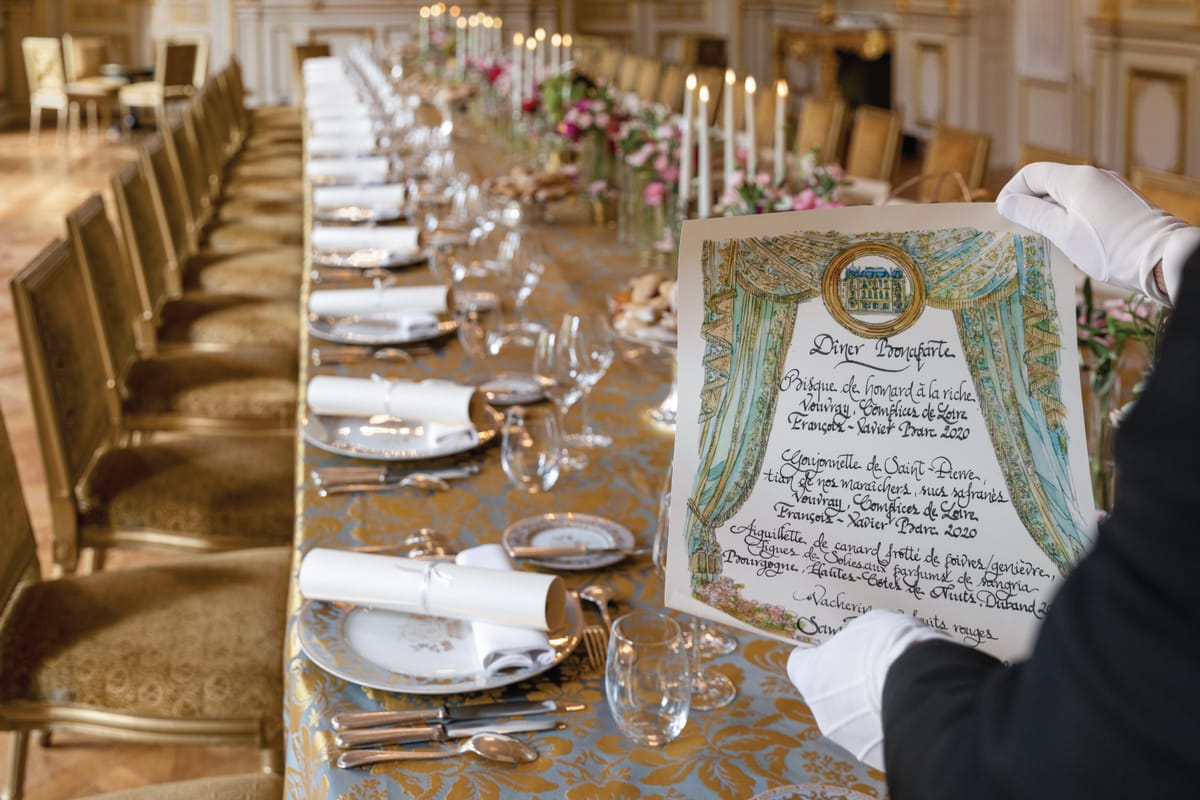 Dîner Bonaparte
Bisque de homard à la riche
Vouvray, Complices de Loire
François-Xavier Barc 2020
Goujonnette de Saint-Pierre,
tian de nos maraîchers, sucs safranés
Vouvray, Complices de Loire
François-Xavier Barc 2020
Aiguillette de canard frotté de poivres/genièvre,
Figues de Soliès aux parfums de sangria
Bourgogne, Hautes-Côtes de Nuits, Duband
Vacherin fruits rouges